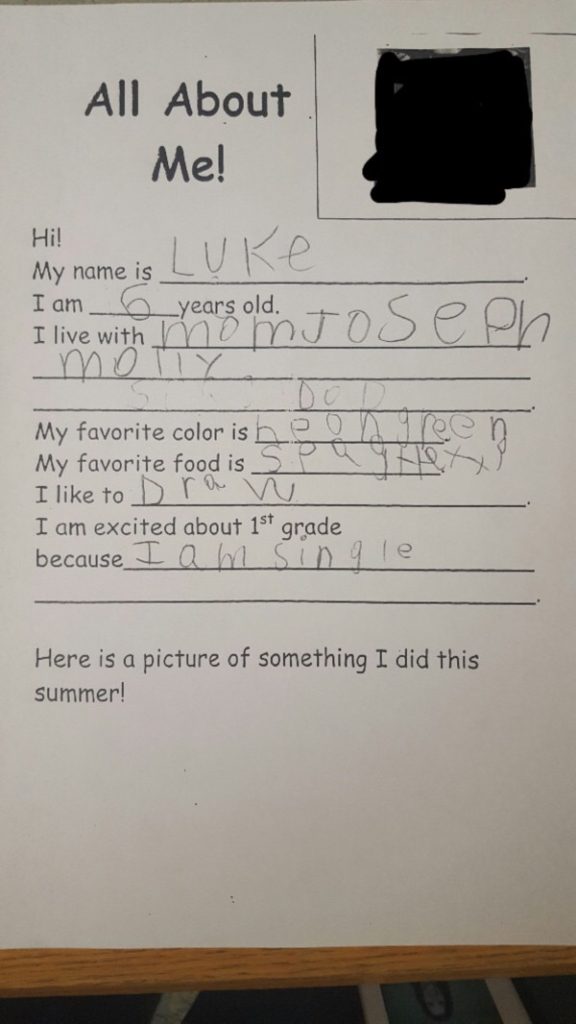 All About
Me!
Hi!
My name is LUKe.
I am 6 years old.
I live with mom JOSePh
mollY
DOD.
My favorite color is neon green
My favorite food is
I like to DraW.
I am excited about 1st grade
because I am single
Here is a picture of something I did this
summer!